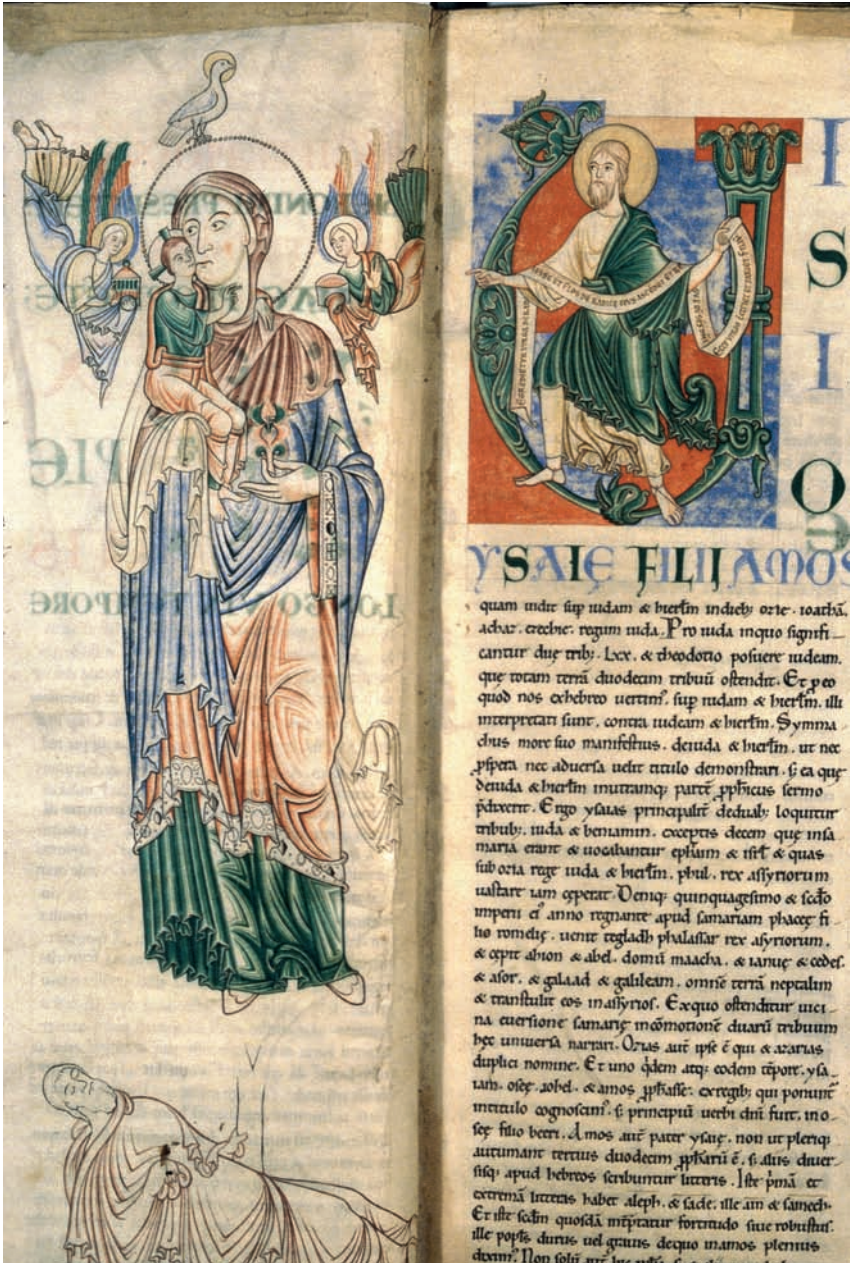 EGREDIETVR VIRGA DE RAD
ET FLOS DE RADICE EIVS ASCENDET ET
Ecce virgo concipiet et pariet filiu
V
I
S
I
O
YSAIE FILII AMOS
quam uidit sup iudam & hierl̄m indieb; ozie. ioathā.
achaz. ezechie. regum iuda. Pro iuda inquo signifi
cantur duę trib;. Lxx. & theodotio posuere iudeam.
que totam terrā duodecim tribuū ostendit. Et ꝑ eo
quod nos exhebreo uertim᾿. sup iudam & hierl̄m. illi
interpretati sunt. contra iudeam & hierl̄m. Symma
chus more suo manifestius. deiuda & hierl̄m. ut nec
ꝓspera nec aduersa uelit titulo demonstrari. s; ea que
deiuda & hierl̄m inutramq; partē ꝓpheticus sermo
p̄dixerit. Ergo ysaias principalit̄ deduab; loquitur
tribub;. iuda & beniamin. exceptis decem quę insa
maria erant & uocabantur ephraim & isrl̄ & quas
sub ozia rege iuda & hierl̄m. phul. rex assyriorum
uastare iam cęperat. Deniq; quinquagesimo & scd̄o
imperii ei᾿ anno regnante apud samariam phaceę fi
lio romelię. uenit tegladh phalassar rex asyriorum.
& cępit ahion & abel. domū maacha. & ianuę & cedes.
& asor. & galaad & galileam. omnē terrā neptalim
& transtulit eos inassyrios. Exquo ostenditur uici
na euersione samarię incōmotionē duarū tribuum
hęc uniuersa narrari. Ozias aut̄ ipse ē qui & azarias
duplici nomine. Et uno q̇dem atq; eodem tēpore. ysa
iam. osee. iohel. & amos ꝓph̄asse. exregib; qui ponunt̄
intitulo cognoscim᾿. s; principiū uerbi dn̄i fuit. ino
see filio beeri. Amos aut̄ pater ysaię. non ut pleriq;
autumant tertius duodecim ꝓph̄arū ē. s; alius diuer
sisq; apud hebreos scribuntur litteris. Iste p̄mā et
extremā litterās habet aleph. & sade. ille ain & samech.
Et iste scd̄m quosdā int̄p̄tatur fortitudo siue robustus.
ille popl̄s durus uel grauis dequo inamos plenius
dixim᾿. Non solū aut̄